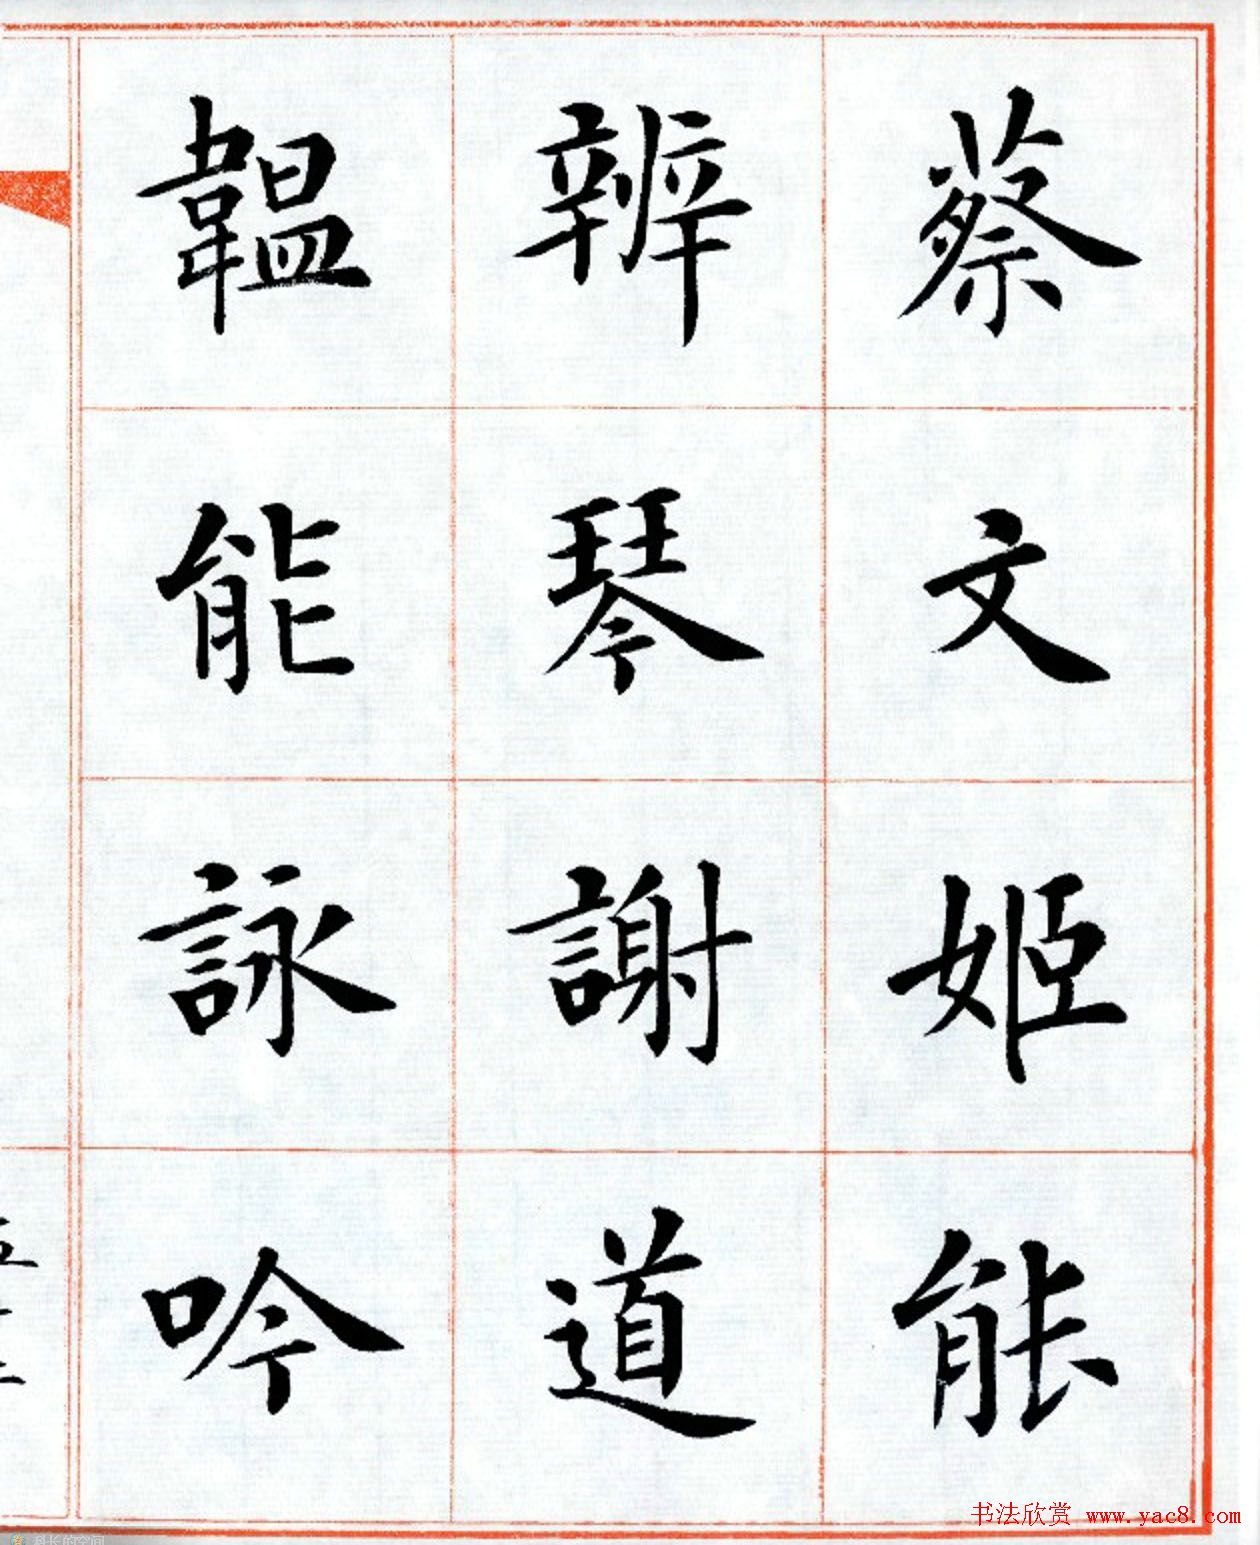 蔡文姬能
辨琴謝道
韞能詠吟
书法欣赏 www.yac8.com